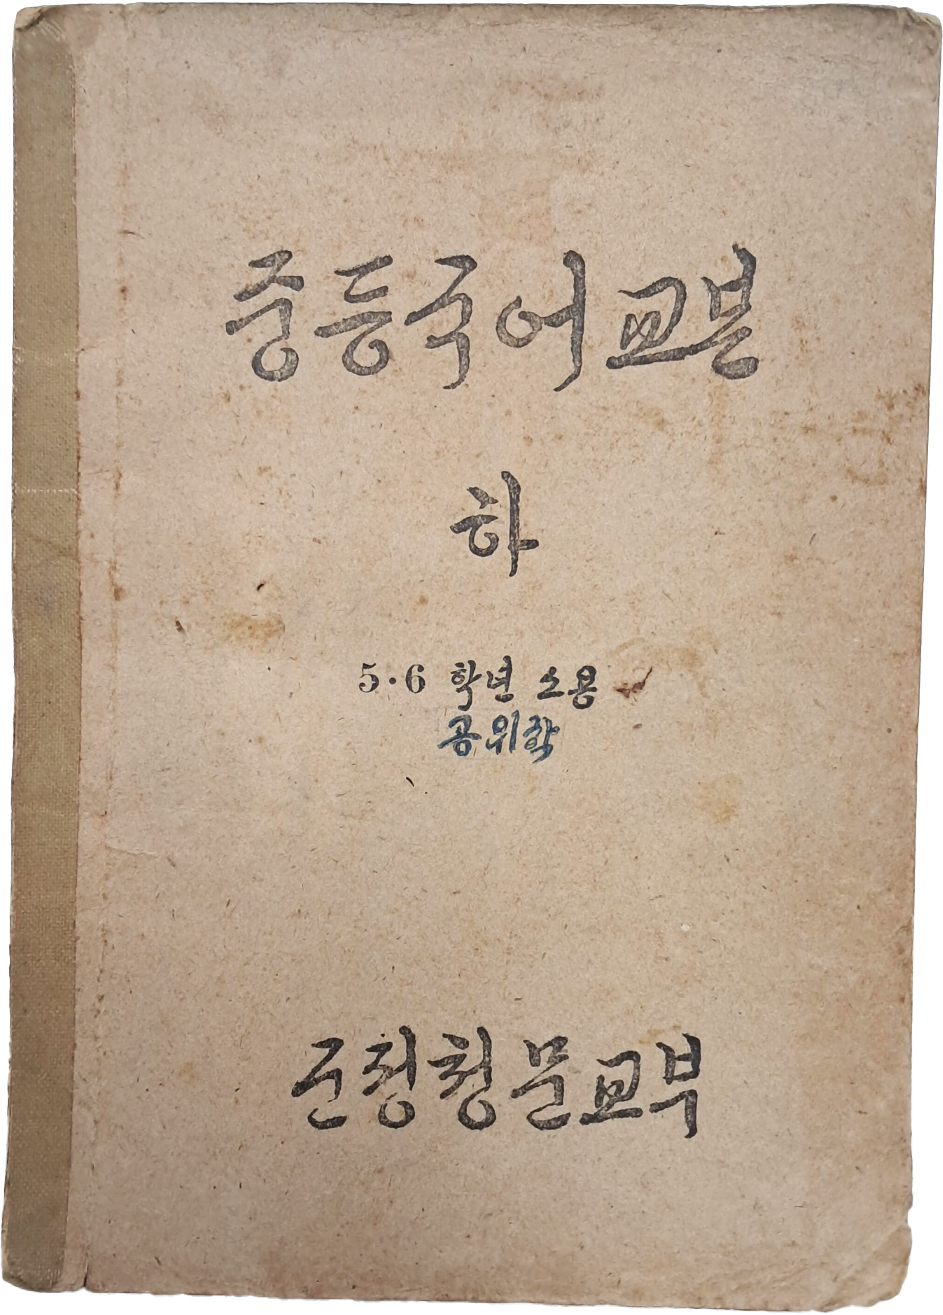 중등국어교본
하
5·6 학년 소용
공위학
군정청문교부